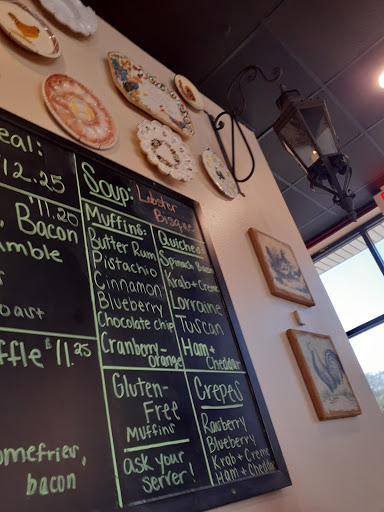 eal:
12.25
$11.25
, Bacon
amble
oast
ffle $11.25
omefries,
bacon
Soup: Lobster
Bisque
Muffins:
Butter Rum
Pistachio
Cinnamon
Blueberry
Chocolate chip
Cranberry-
orange
Quiches:
Spinach Bacon
Krab + Creme
Lorraine
Tuscan
Ham +
Cheddar
Gluten-
Free
Muffins
ask your
server!
Crepes
Raspberry
Blueberry
Krab + Creme
Ham + Cheddar